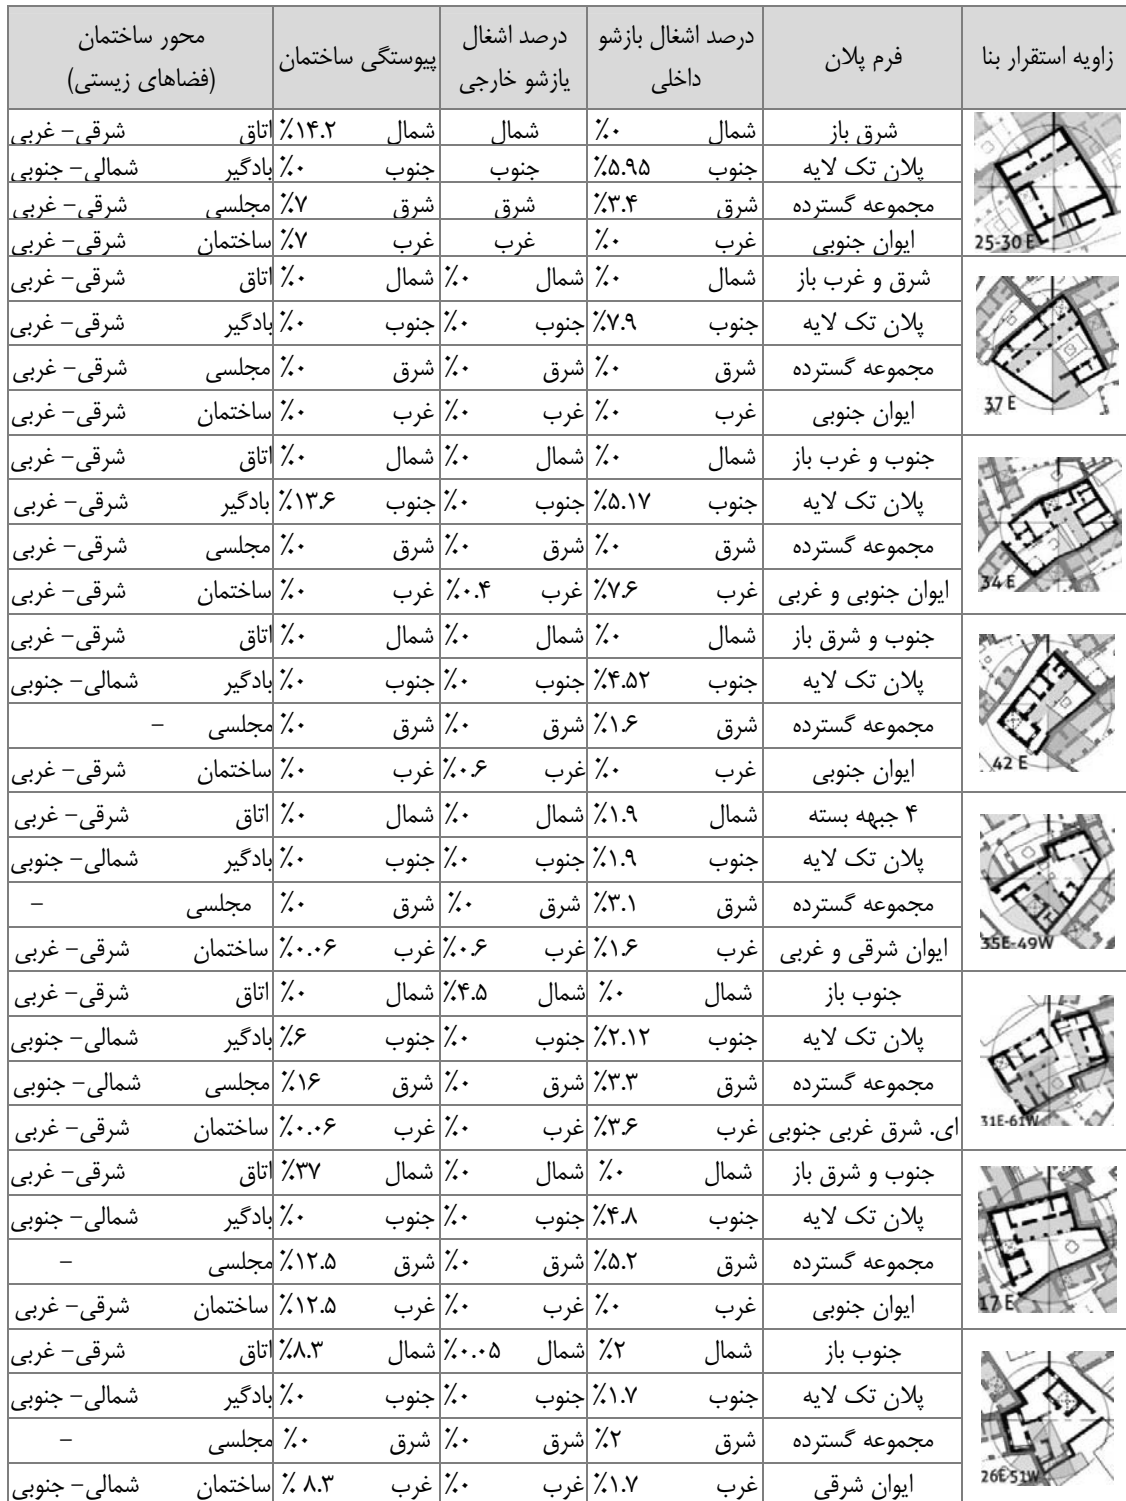 زاویه استقرار بنا | فرم پلان | درصد اشغال بازشو داخلی | درصد اشغال یازشو خارجی | پیوستگی ساختمان | محور ساختمان (فضاهای زیستی)
25-30 E | شرق باز | شمال ۰٪ | شمال | شمال ۱۴.۲٪ | اتاق شرقی- غربی
پلان تک لایه | جنوب ۵.۹۵٪ | جنوب | جنوب ۰٪ | بادگیر شمالی- جنوبی
مجموعه گسترده | شرق ۳.۴٪ | شرق | شرق ۷٪ | مجلسی شرقی- غربی
ایوان جنوبی | غرب ۰٪ | غرب | غرب ۷٪ | ساختمان شرقی- غربی
37 E | شرق و غرب باز | شمال ۰٪ | شمال ۰٪ | شمال ۰٪ | اتاق شرقی- غربی
پلان تک لایه | جنوب ۷.۹٪ | جنوب ۰٪ | جنوب ۰٪ | بادگیر شرقی- غربی
مجموعه گسترده | شرق ۰٪ | شرق ۰٪ | شرق ۰٪ | مجلسی شرقی- غربی
ایوان جنوبی | غرب ۰٪ | غرب ۰٪ | غرب ۰٪ | ساختمان شرقی- غربی
34 E | جنوب و غرب باز | شمال ۰٪ | شمال ۰٪ | شمال ۰٪ | اتاق شرقی- غربی
پلان تک لایه | جنوب ۵.۱۷٪ | جنوب ۰٪ | جنوب ۱۳.۶٪ | بادگیر شرقی- غربی
مجموعه گسترده | شرق ۰٪ | شرق ۰٪ | شرق ۰٪ | مجلسی شرقی- غربی
ایوان جنوبی و غربی | غرب ۷.۶٪ | غرب ۰.۴٪ | غرب ۰٪ | ساختمان شرقی- غربی
42 E | جنوب و شرق باز | شمال ۰٪ | شمال ۰٪ | شمال ۰٪ | اتاق شرقی- غربی
پلان تک لایه | جنوب ۴.۵۲٪ | جنوب ۰٪ | جنوب ۰٪ | بادگیر شمالی- جنوبی
مجموعه گسترده | شرق ۱.۶٪ | شرق ۰٪ | شرق ۰٪ | مجلسی -
ایوان جنوبی | غرب ۰٪ | غرب ۰.۶٪ | غرب ۰٪ | ساختمان شرقی- غربی
35E-49W | ۴ جبهه بسته | شمال ۱.۹٪ | شمال ۰٪ | شمال ۰٪ | اتاق شرقی- غربی
پلان تک لایه | جنوب ۱.۹٪ | جنوب ۰٪ | جنوب ۰٪ | بادگیر شمالی- جنوبی
مجموعه گسترده | شرق ۳.۱٪ | شرق ۰٪ | شرق ۰٪ | مجلسی -
ایوان شرقی و غربی | غرب ۱.۶٪ | غرب ۰.۶٪ | غرب ۰.۰۶٪ | ساختمان شرقی- غربی
31E-61W | جنوب باز | شمال ۰٪ | شمال ۴.۵٪ | شمال ۰٪ | اتاق شرقی- غربی
پلان تک لایه | جنوب ۲.۱۲٪ | جنوب ۰٪ | جنوب ۶٪ | بادگیر شمالی- جنوبی
مجموعه گسترده | شرق ۳.۳٪ | شرق ۰٪ | شرق ۱۶٪ | مجلسی شمالی- جنوبی
ای. شرق غربی جنوبی | غرب ۳.۶٪ | غرب ۰٪ | غرب ۰.۰۶٪ | ساختمان شرقی- غربی
17 E | جنوب و شرق باز | شمال ۰٪ | شمال ۰٪ | شمال ۳۷٪ | اتاق شرقی- غربی
پلان تک لایه | جنوب ۴.۸٪ | جنوب ۰٪ | جنوب ۰٪ | بادگیر شمالی- جنوبی
مجموعه گسترده | شرق ۵.۲٪ | شرق ۰٪ | شرق ۱۲.۵٪ | مجلسی -
ایوان جنوبی | غرب ۰٪ | غرب ۰٪ | غرب ۱۲.۵٪ | ساختمان شرقی- غربی
26E-51W | جنوب باز | شمال ۲٪ | شمال ۰.۰۵٪ | شمال ۸.۳٪ | اتاق شرقی- غربی
پلان تک لایه | جنوب ۱.۷٪ | جنوب ۰٪ | جنوب ۰٪ | بادگیر شمالی- جنوبی
مجموعه گسترده | شرق ۲٪ | شرق ۰٪ | شرق ۰٪ | مجلسی -
ایوان شرقی | غرب ۱.۷٪ | غرب ۰٪ | غرب ۸.۳ ٪ | ساختمان شمالی- جنوبی